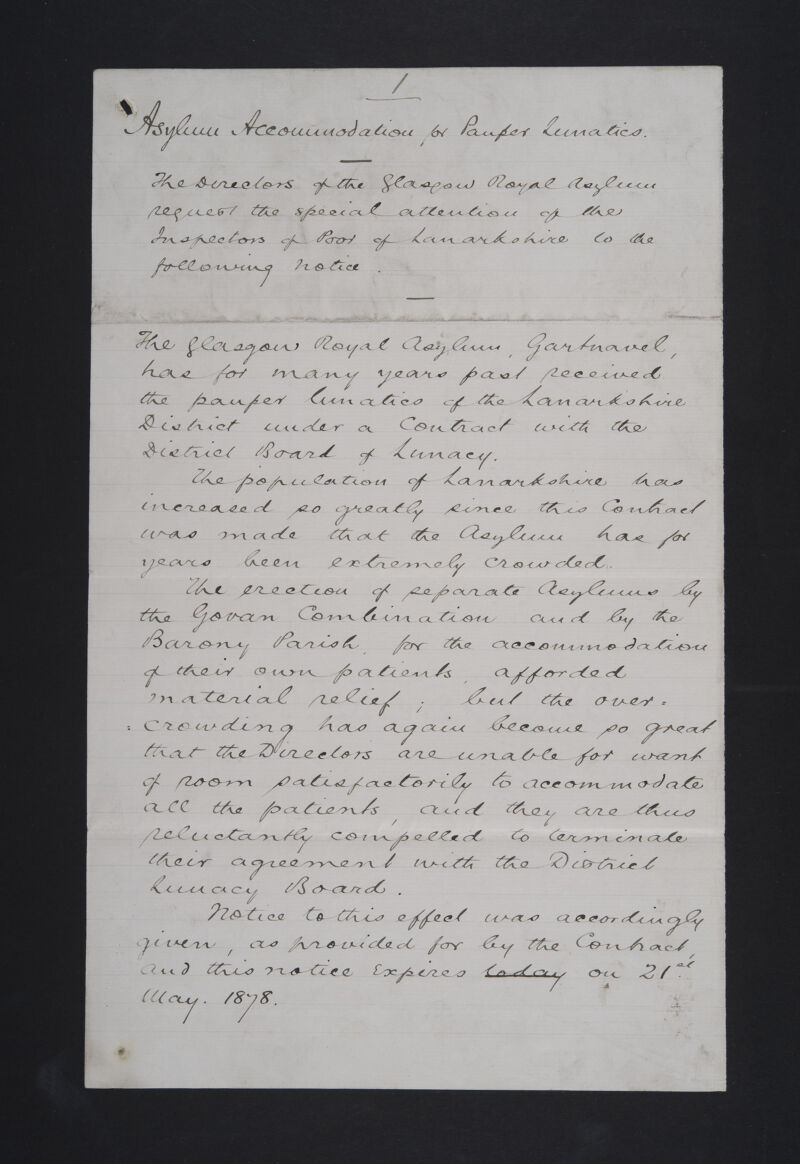 1
Asylum Accommodation for Pauper Lunatics.
The Directors of the Glasgow Royal Asylum
request the special attention of the
Inspectors of Poor of Lanarkshire to the
following Notice.
The Glasgow Royal Asylum, Gartnavel,
has for many years past received
the pauper lunatics of the Lanarkshire
District under a Contract with the
District Board of Lunacy.
The population of Lanarkshire has
increased so greatly since this Contract
was made that the Asylum has for
years been extremely crowded.
The erection of separate Asylums by
the Govan Combination and by the
Barony Parish, for the accommodation
of their own patients, afforded
material relief; but the over=
=crowding has again become so great
that the Directors are unable for want
of room satisfactorily to accommodate
all the patients, and they are thus
reluctantly compelled to terminate
their agreement with the District
Lunacy Board.
Notice to this effect was accordingly
given, as provided for by the Contract,
and this notice expires today on 21st
May. 1878.